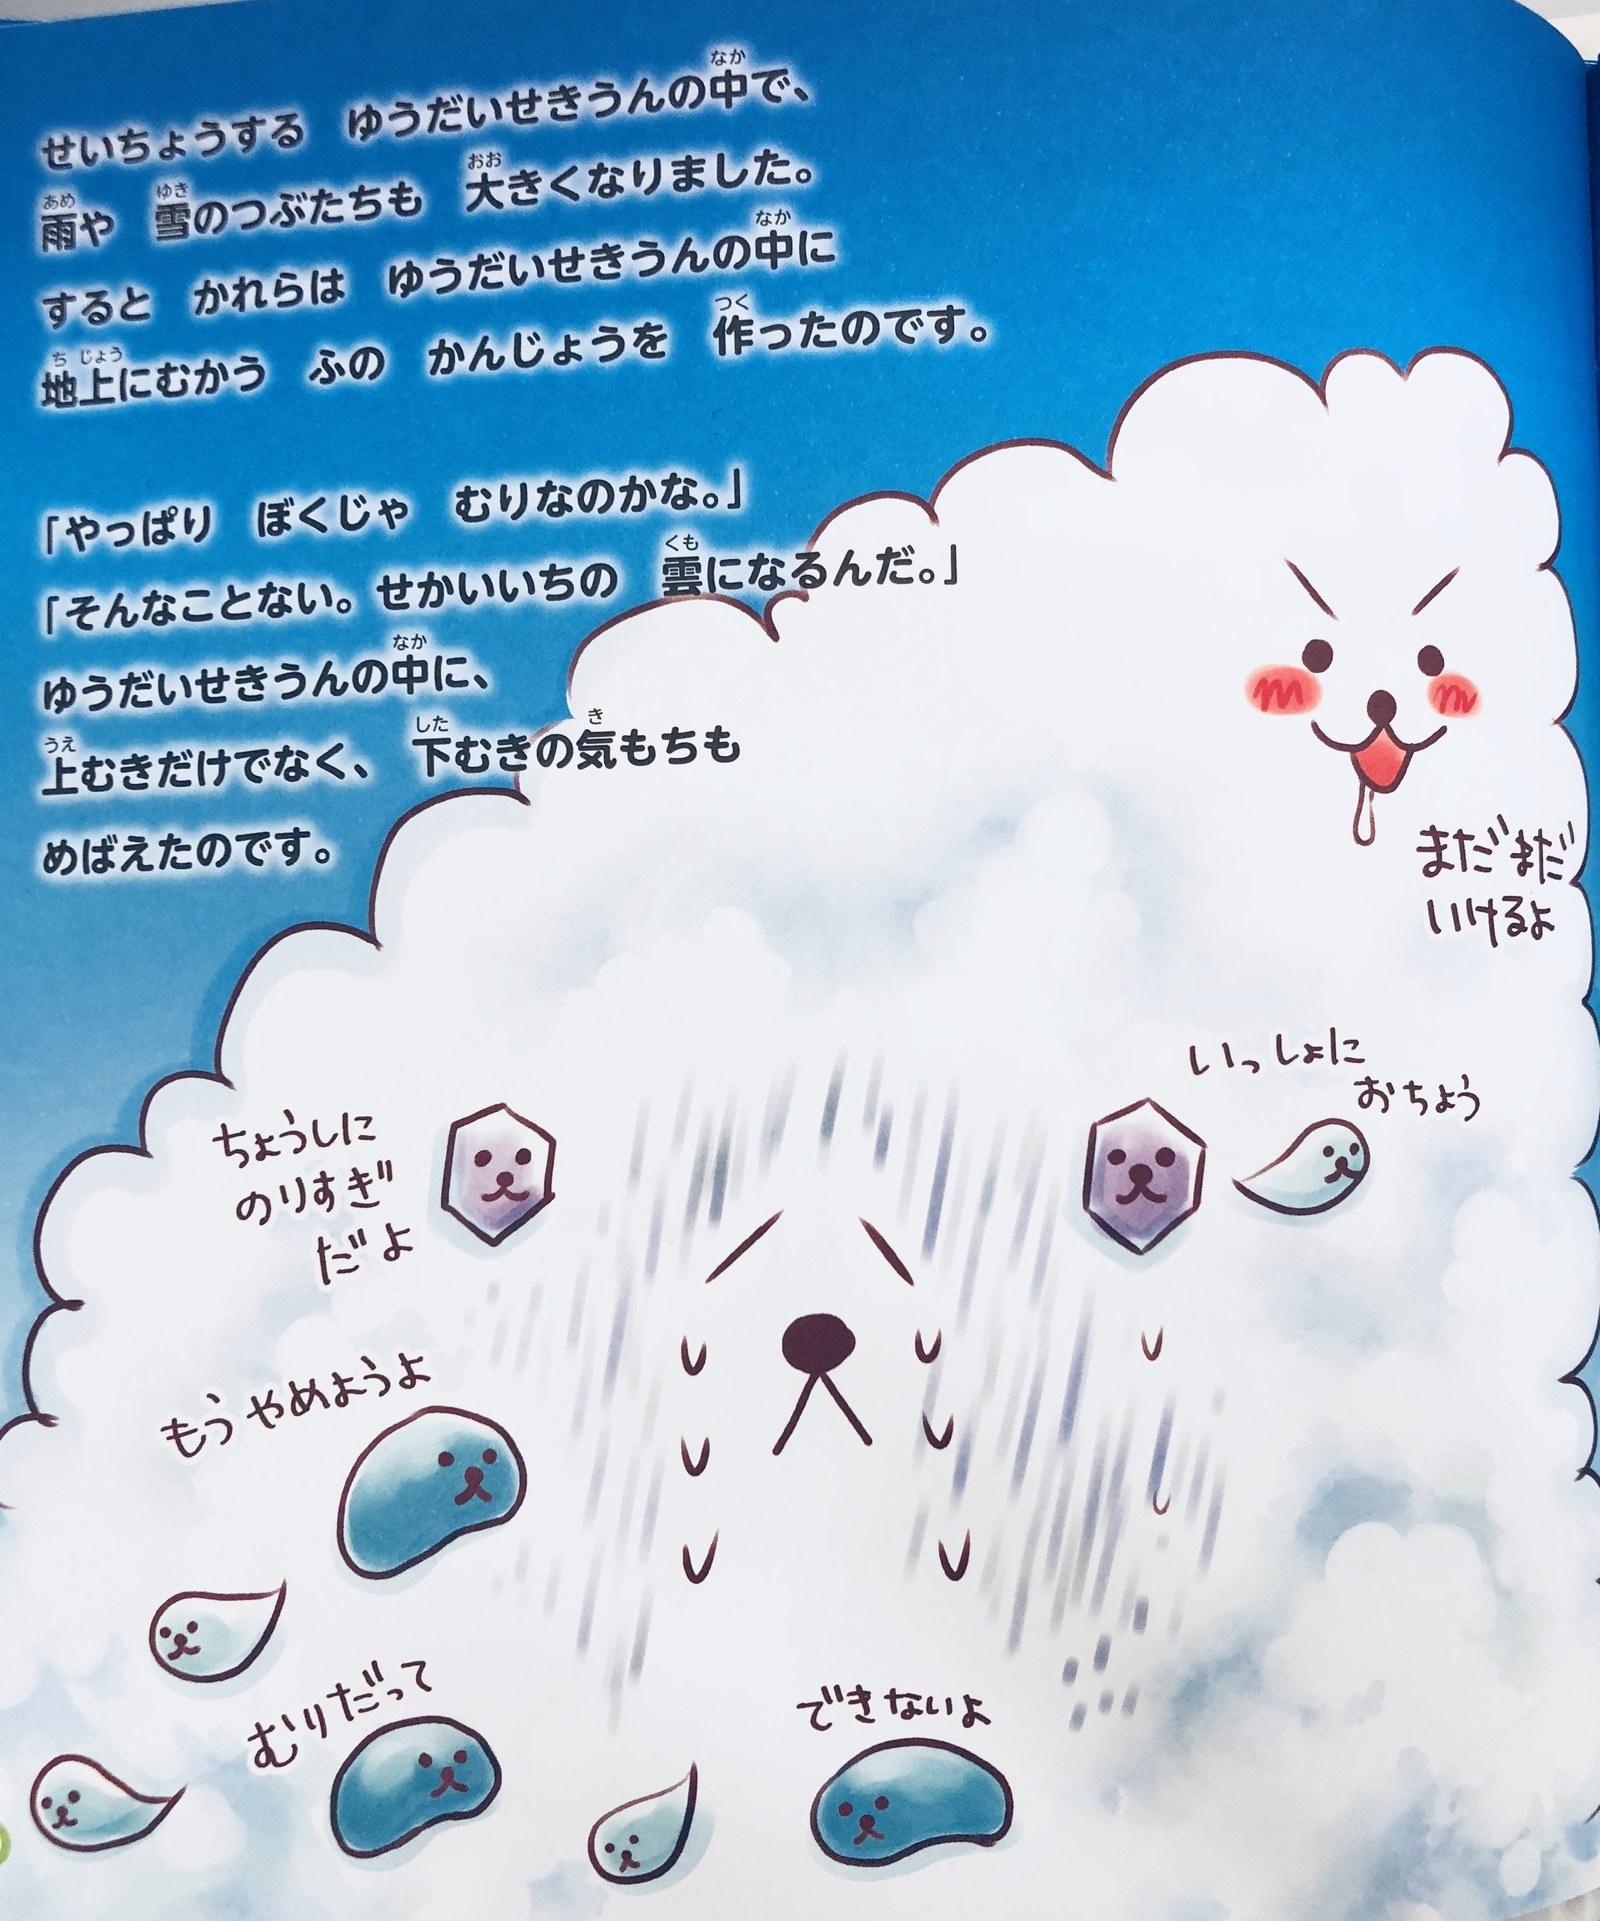 せいちょうする　ゆうだいせきうんの中で、
雨や　雪のつぶたちも　大きくなりました。
すると　かれらは　ゆうだいせきうんの中に
地上にむかう　ふの　かんじょうを　作ったのです。
「やっぱり　ぼくじゃ　むりなのかな。」
「そんなことない。せかいいちの　雲になるんだ。」
ゆうだいせきうんの中に、
上むきだけでなく、　下むきの気もちも
めばえたのです。
まだまだ
いけるよ
いっしょに
おちょう
ちょうしに
のりすぎ
だよ
もうやめようよ
むりだって
できないよ